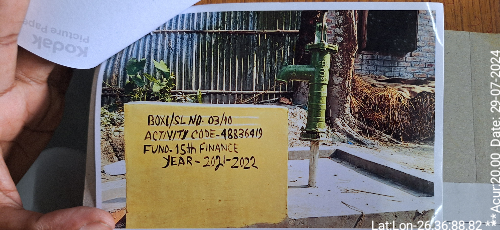 Kodak
Picture Paper
BOX1/SL NO- 03/10
ACTIVITY CODE-48836419
FUND- 15th FINANCE
YEAR - 2021-2022
Lat:Lon-26.36.88,82
***Acur:20.00 Date: 29.07.2024